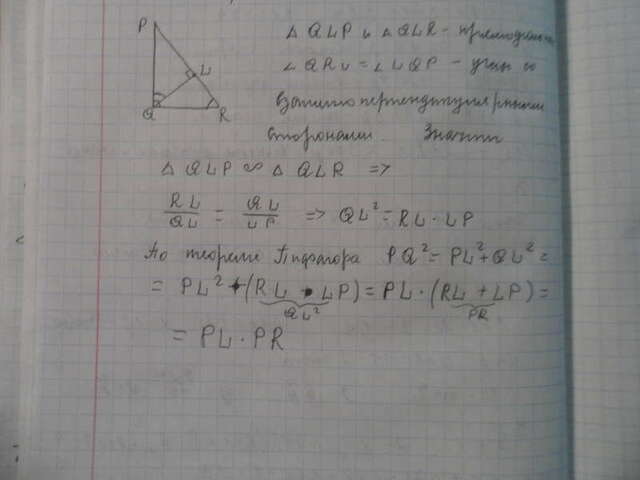 P
L
Q
R
△ QLP и △ QLR -
∠QRL = ∠LQP - углы со
взаимно перпендикулярными
сторонами. Значит
△ QLP ∽ △ QLR =>
RL/QL = QL/LP => QL² = RL · LP
По теореме Пифагора PQ² = PL² + QL² =
= PL² + (RL · LP) = PL · (RL + LP) =
QL² PR
= PL · PR